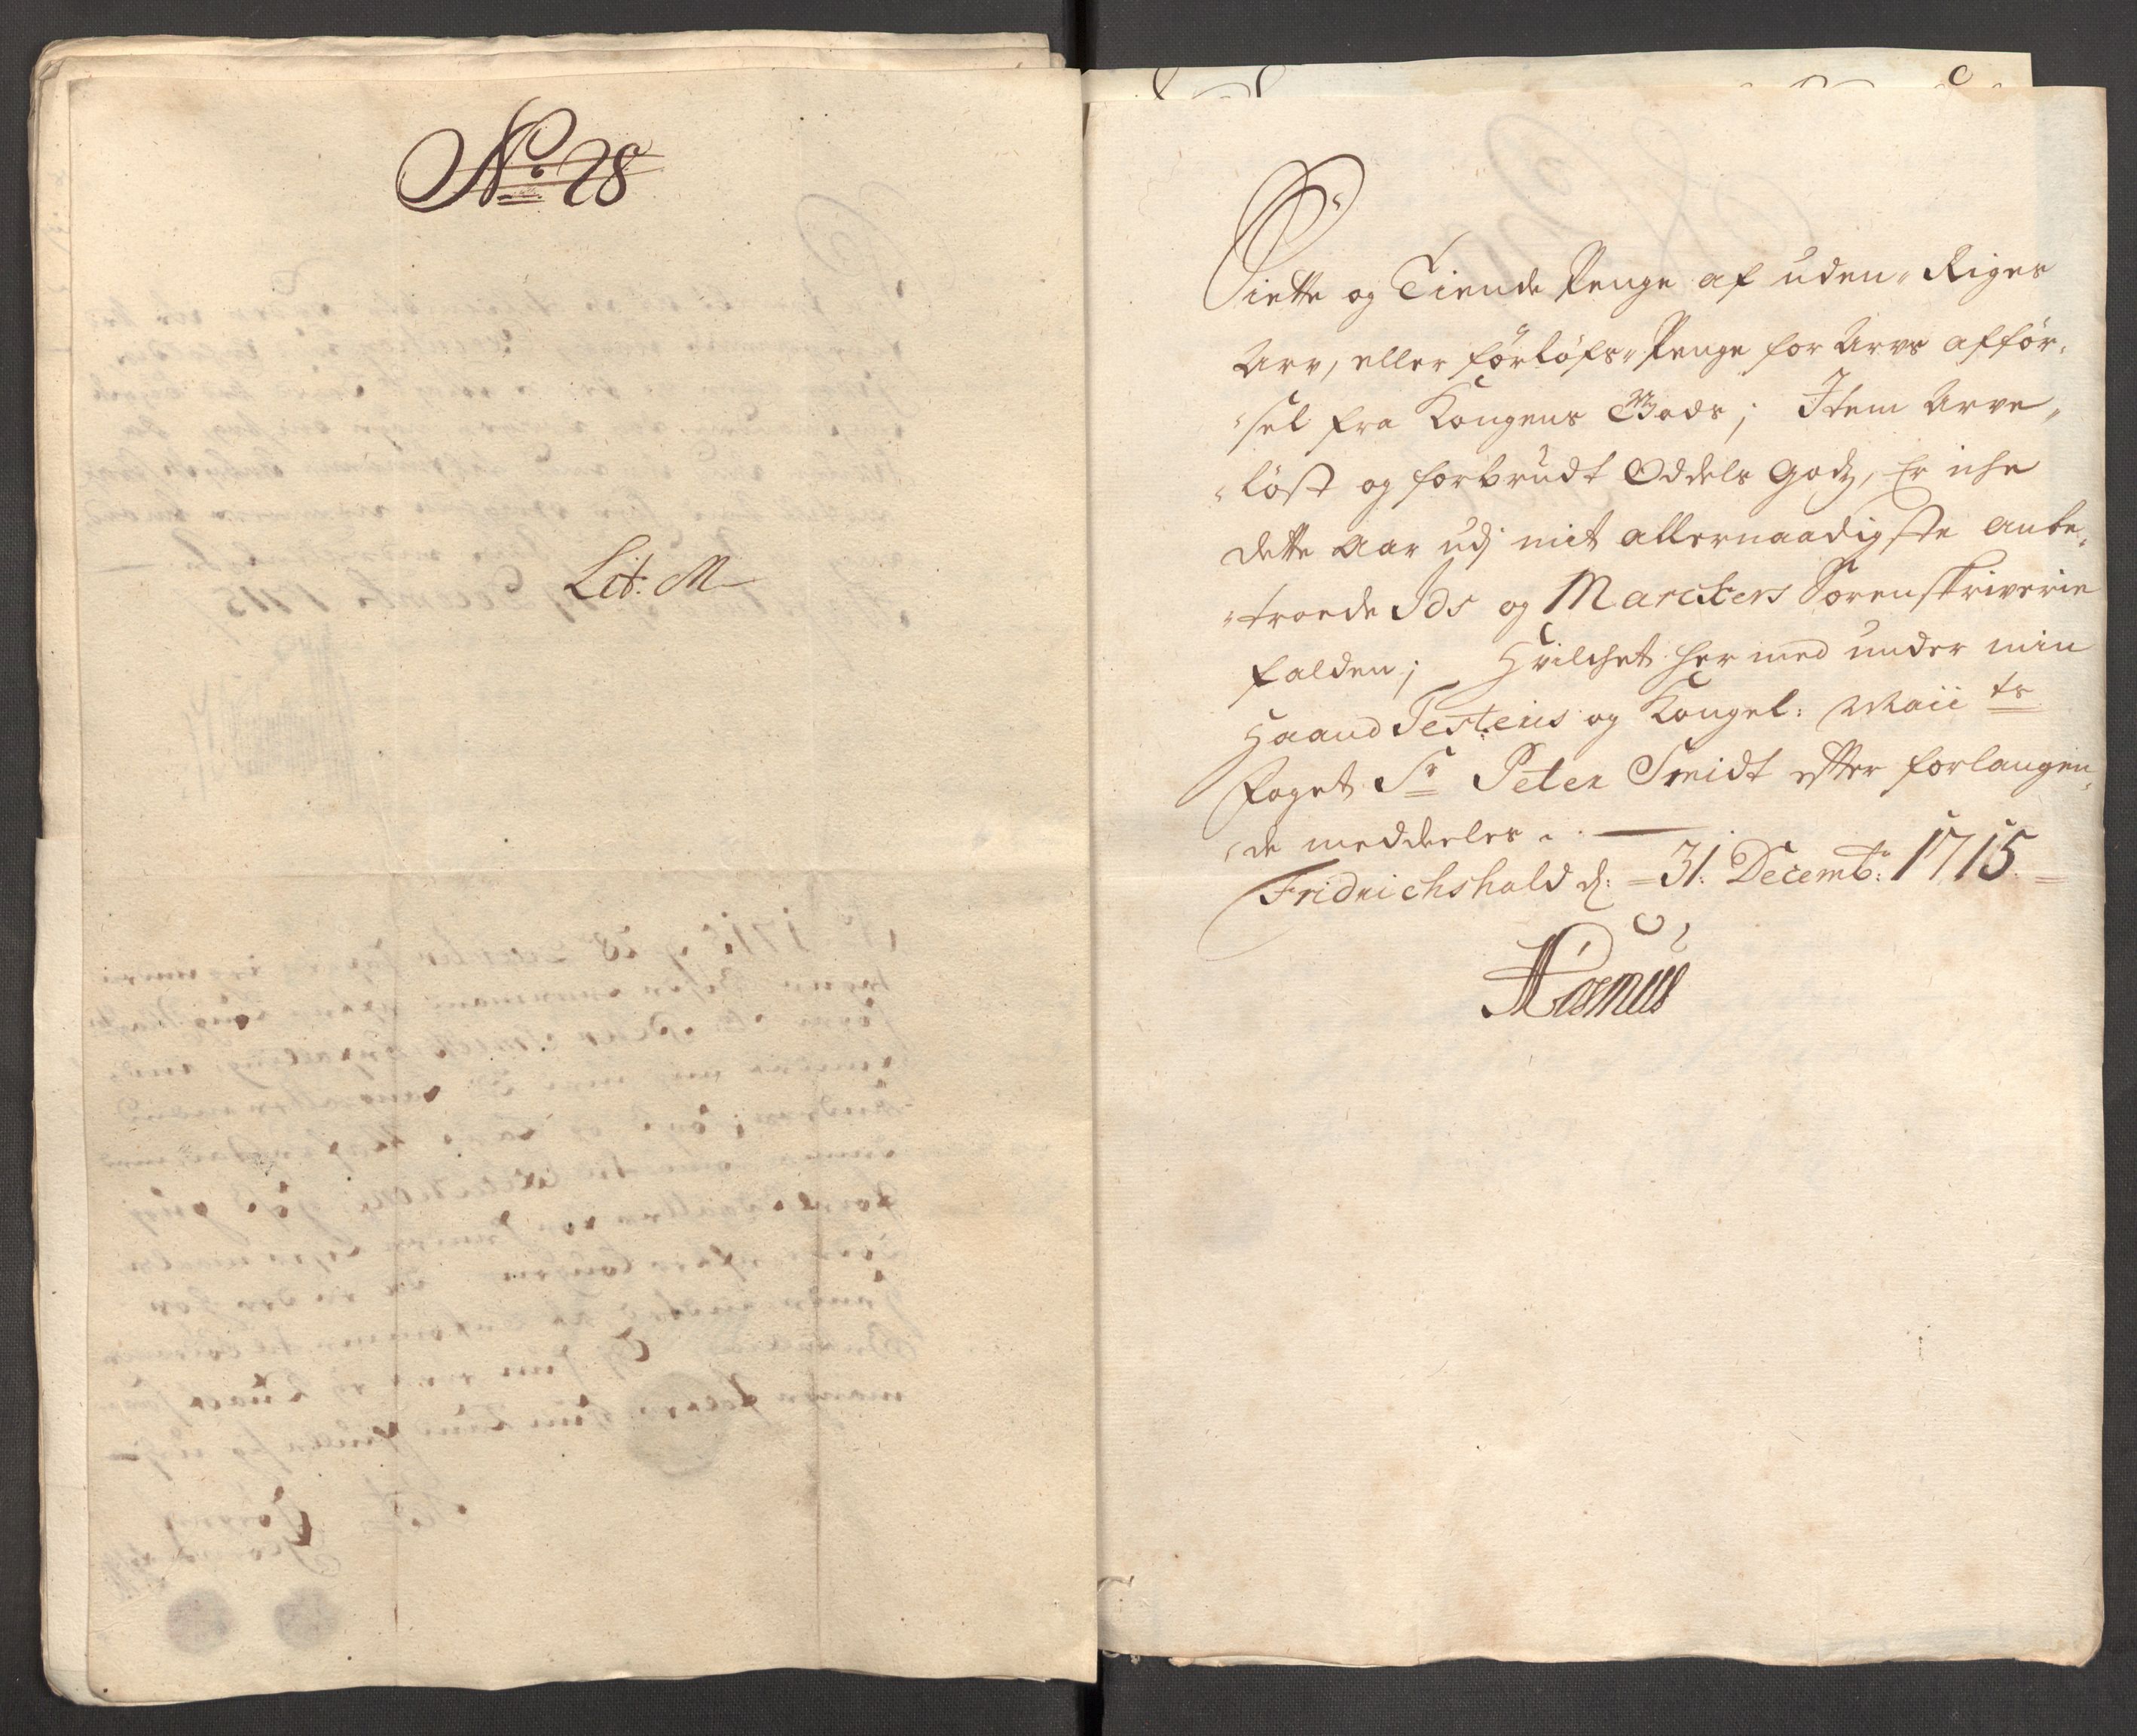 No: 28
Lit: M
Siette og Tiende Penge af uden-Riges
Arv, eller förlofs-Penge for Arvs afför-
-sel fra Kongens Gods; Item Arve-
-löst og forbrudt Oddels Godz, Er iche
dette Aar udj mit allernaadigste anbe-
-troede Ids og Marckers Sorenskriverie
falden; Hvilchet her med under min
Haand Testeris og Kongel: Maii ts
Foget Sr Peter Smidt efter forlangen-
-de meddeeles.
Fridrichshald d: 31: Decemb: 1715.